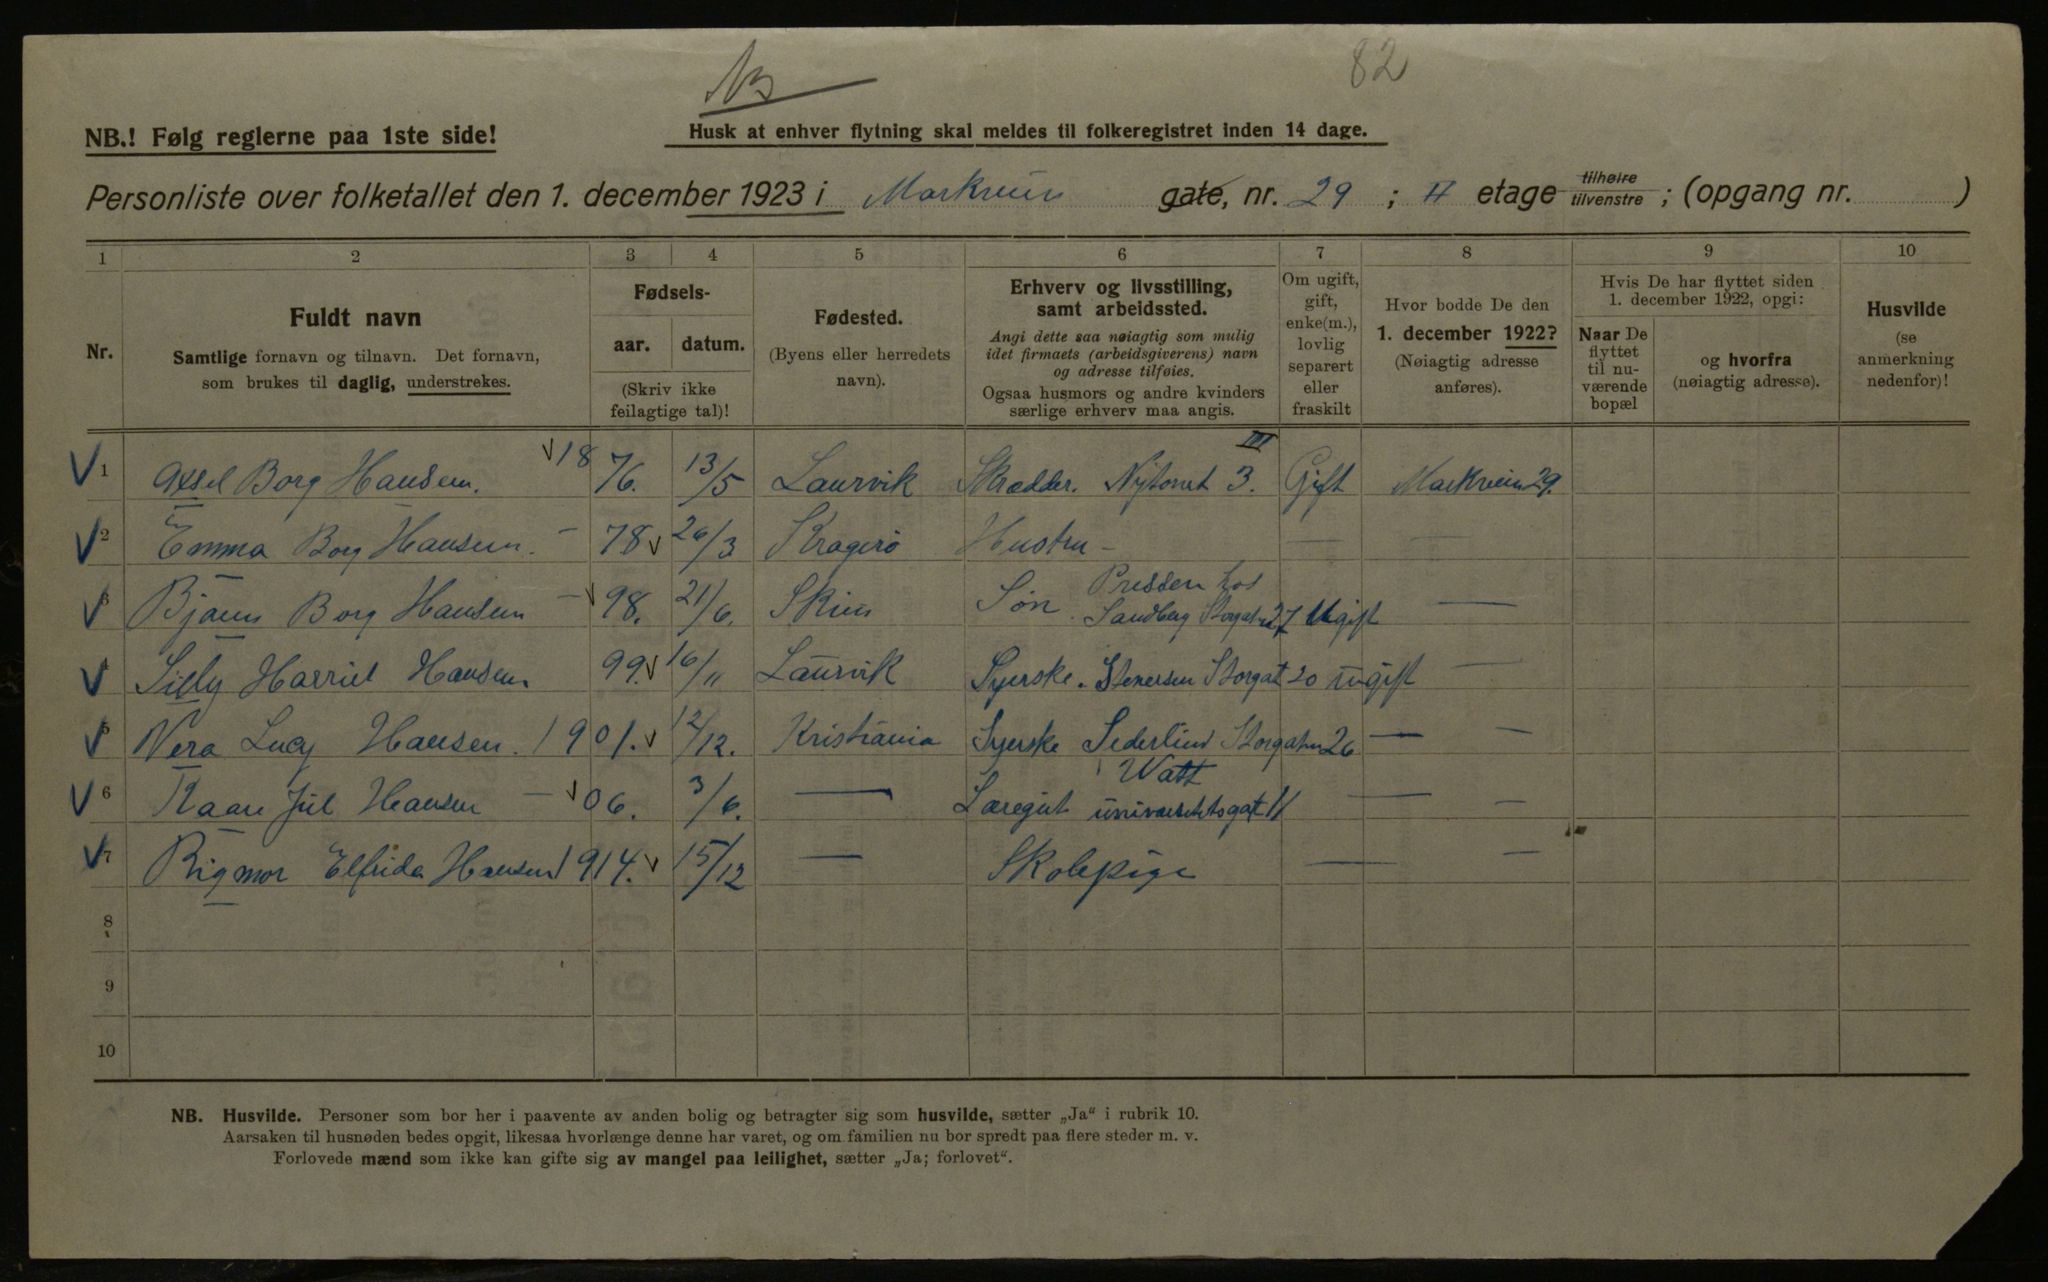 NB
82
NB.! Følg reglerne paa 1ste side!
Husk at enhver flytning skal meldes til folkeregistret inden 14 dage.
Personliste over folketallet den 1. december 1923 i Markveien gate, nr. 29 ; II etage tilhøire tilvenstre ; (opgang nr. )
1 2 3 4 5 6 7 8 9 10
Nr.
Fuldt navn
Samtlige fornavn og tilnavn. Det fornavn,
som brukes til daglig, understrekes.
Fødsels-
aar. datum.
(Skriv ikke
feilagtige tal)!
Fødested.
(Byens eller herredets
navn).
Erhverv og livsstilling,
samt arbeidssted.
Angi dette saa nøiagtig som mulig
idet firmaets (arbeidsgiverens) navn
og adresse tilføies.
Ogsaa husmors og andre kvinders
særlige erhverv maa angis.
Om ugift,
gift,
enke(m.),
lovlig
separert
eller
fraskilt
Hvor bodde De den
1. december 1922?
(Nøiagtig adresse
anføres).
Hvis De har flyttet siden
1. december 1922, opgi:
Naar De
flyttet
til nu-
værende
bopæl
og hvorfra
(nøiagtig adresse).
Husvilde
(se
anmerkning
nedenfor)!
III
V 1 Axsel Borg Hansen. V 18 76. 13/5 Laurvik Skrædder. Nytorvet 3. Gift Markveien 29.
V 2 Emma Borg Hansen. — 78 V 26/3 Kragerö Hustru — — —
V 3 Bjarne Borg Hansen — V 98. 21/6. Skien Sön Pressen hos
Sandberg Storgaten 27 Ugift —
V 4 Silly Harriet Hansen 99. V 16/11 Laurvik Syerske. Stenersen Storgat 20 ugift —
V 5 Vera Lucy Hansen. 1901. V 12/12. Kristiania Syerske Sederlind Storgaten 26 — —
V 6 Kaare Jul Hansen — V 06. 3/6. — Læregut Watt
universitetsgat 11 — —
V 7 Rigmor Elfrida Hansen 1914. V 15/12 — Skolepige — —
8
9
10
NB. Husvilde. Personer som bor her i paavente av anden bolig og betragter sig som husvilde, sætter „Ja“ i rubrik 10.
Aarsaken til husnøden bedes opgit, likesaa hvorlænge denne har varet, og om familien nu bor spredt paa flere steder m. v.
Forlovede mænd som ikke kan gifte sig av mangel paa leilighet, sætter „Ja; forlovet“.